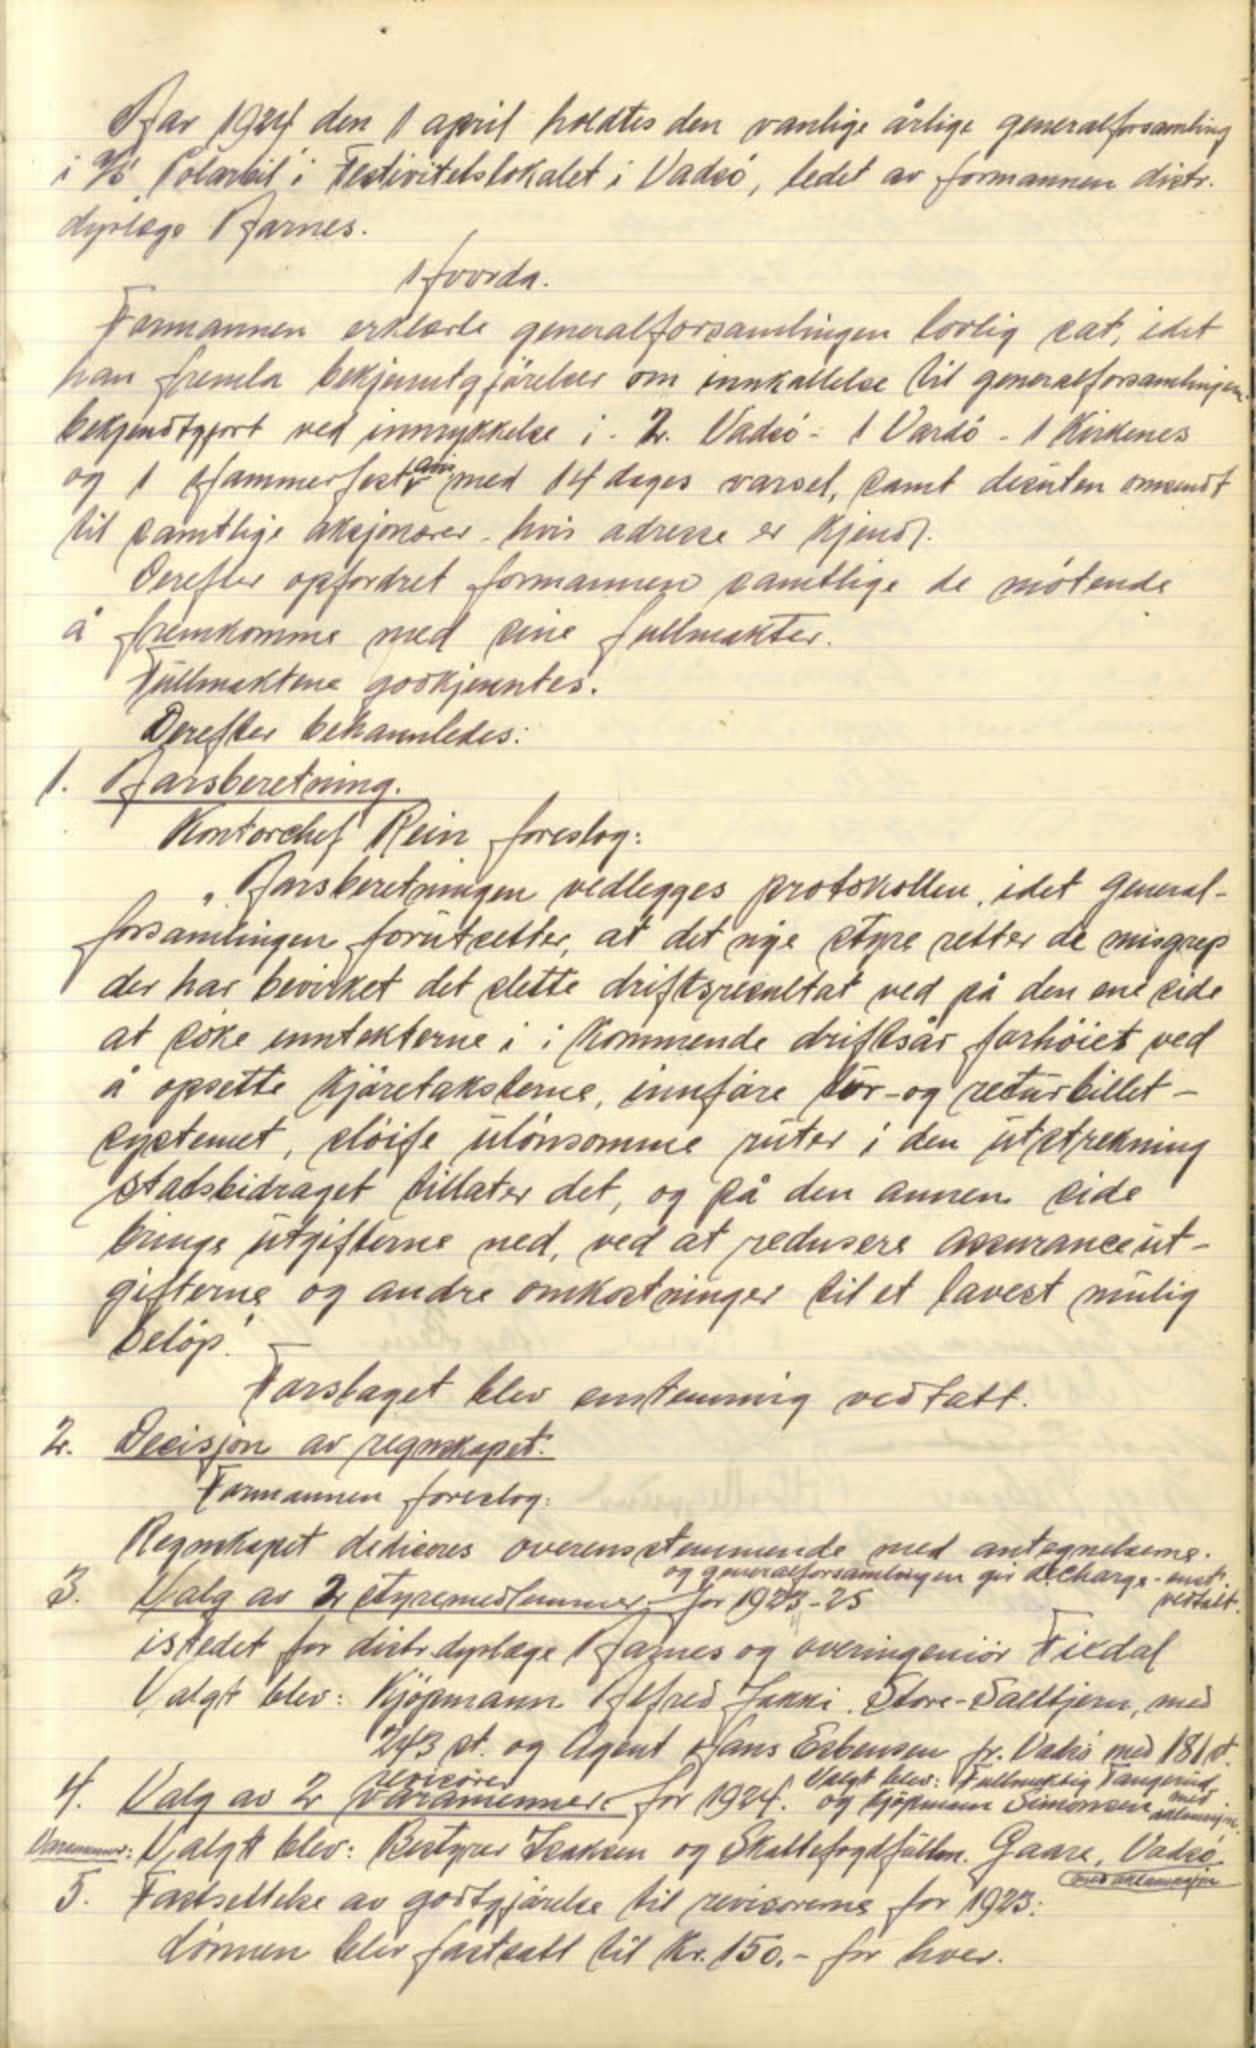 Aar 1924 den 1 april holdtes den vanlige årlige generalforsamling
i A/S "Polarbil" i Festivitetslokalet i Vadsö, ledet av formannen distr.
dyrlæge Aarnes.
Fremmøte
Formannen erklærte generalforsamlingen lovlig sat, idet
han fremla bekjenntgjörelser om innkallelse til generalforsamlingen
bekjendtgjort ved innrykkelse i - 2 Vadsö - 1 Vardö - 1 Kirkenes
og 1 Hammerfest avis med 14 dages varsel, samt desuten omsendt
til samtlige aksjonærer - hvis adresse er kjendt.
Derefter opfordret formannen samtlige de mötende
å fremkomme med sine fullmakter.
Fullmaktene godkjenntes.
Derefter behannledes:
1. Aarsberetning.
Kontorchef Rein foreslog:
"Aarsberetningen vedlegges protokollen, idet general-
forsamlingen forutsetter, at det nye styre retter de misgrep
der har bevirket det slette driftsresultat ved på den ene side
at söke inntekterne i i kommende driftsår forhöiet ved
å opsette kjöretaksterne, innföre tur- og returbillet-
systemet, slöife ulönsomme ruter i den utstrekning
statsbidraget tillater det, og på den annen side
bringe utgifterne ned, ved at redusere assuranceut-
gifterne og andre omkostninger til et lavest mulig
belöp".
Forslaget blev enstemmig vedtatt.
2. Decisjon av regnskapet.
Formannen foreslog:
Regnskapet deciceres overensstemmende med antegnelserne.
og generalforsamlingen gir decharge - enst. vedtatt.
3. Valg av 2 styremedlemmer for 1923-25
istedet for distr. dyrlæge Aarnes og overingeniör Fixdal
Valgt blev: Kjöpmann Alfred Jakki, Store-Saltjern, med
243 st. og Agent Hans Esbensen fr. Vadsö med 181 st.
4. Valg av 2 revisorer varamenner for 1924. Valgt blev: Fullmektig Tangerud
og kjöpmann Simonsen med aklamasjon.
Varamenner: Valgt blev: Bestyrer Isaksen og Skattefogdfullm. Gaare, Vadsö
med aklamasjon
5. Fastsettelse av godtgjörelse til revisorerne for 1923:
Lönnen blev fastsatt til kr. 150,- for hver.